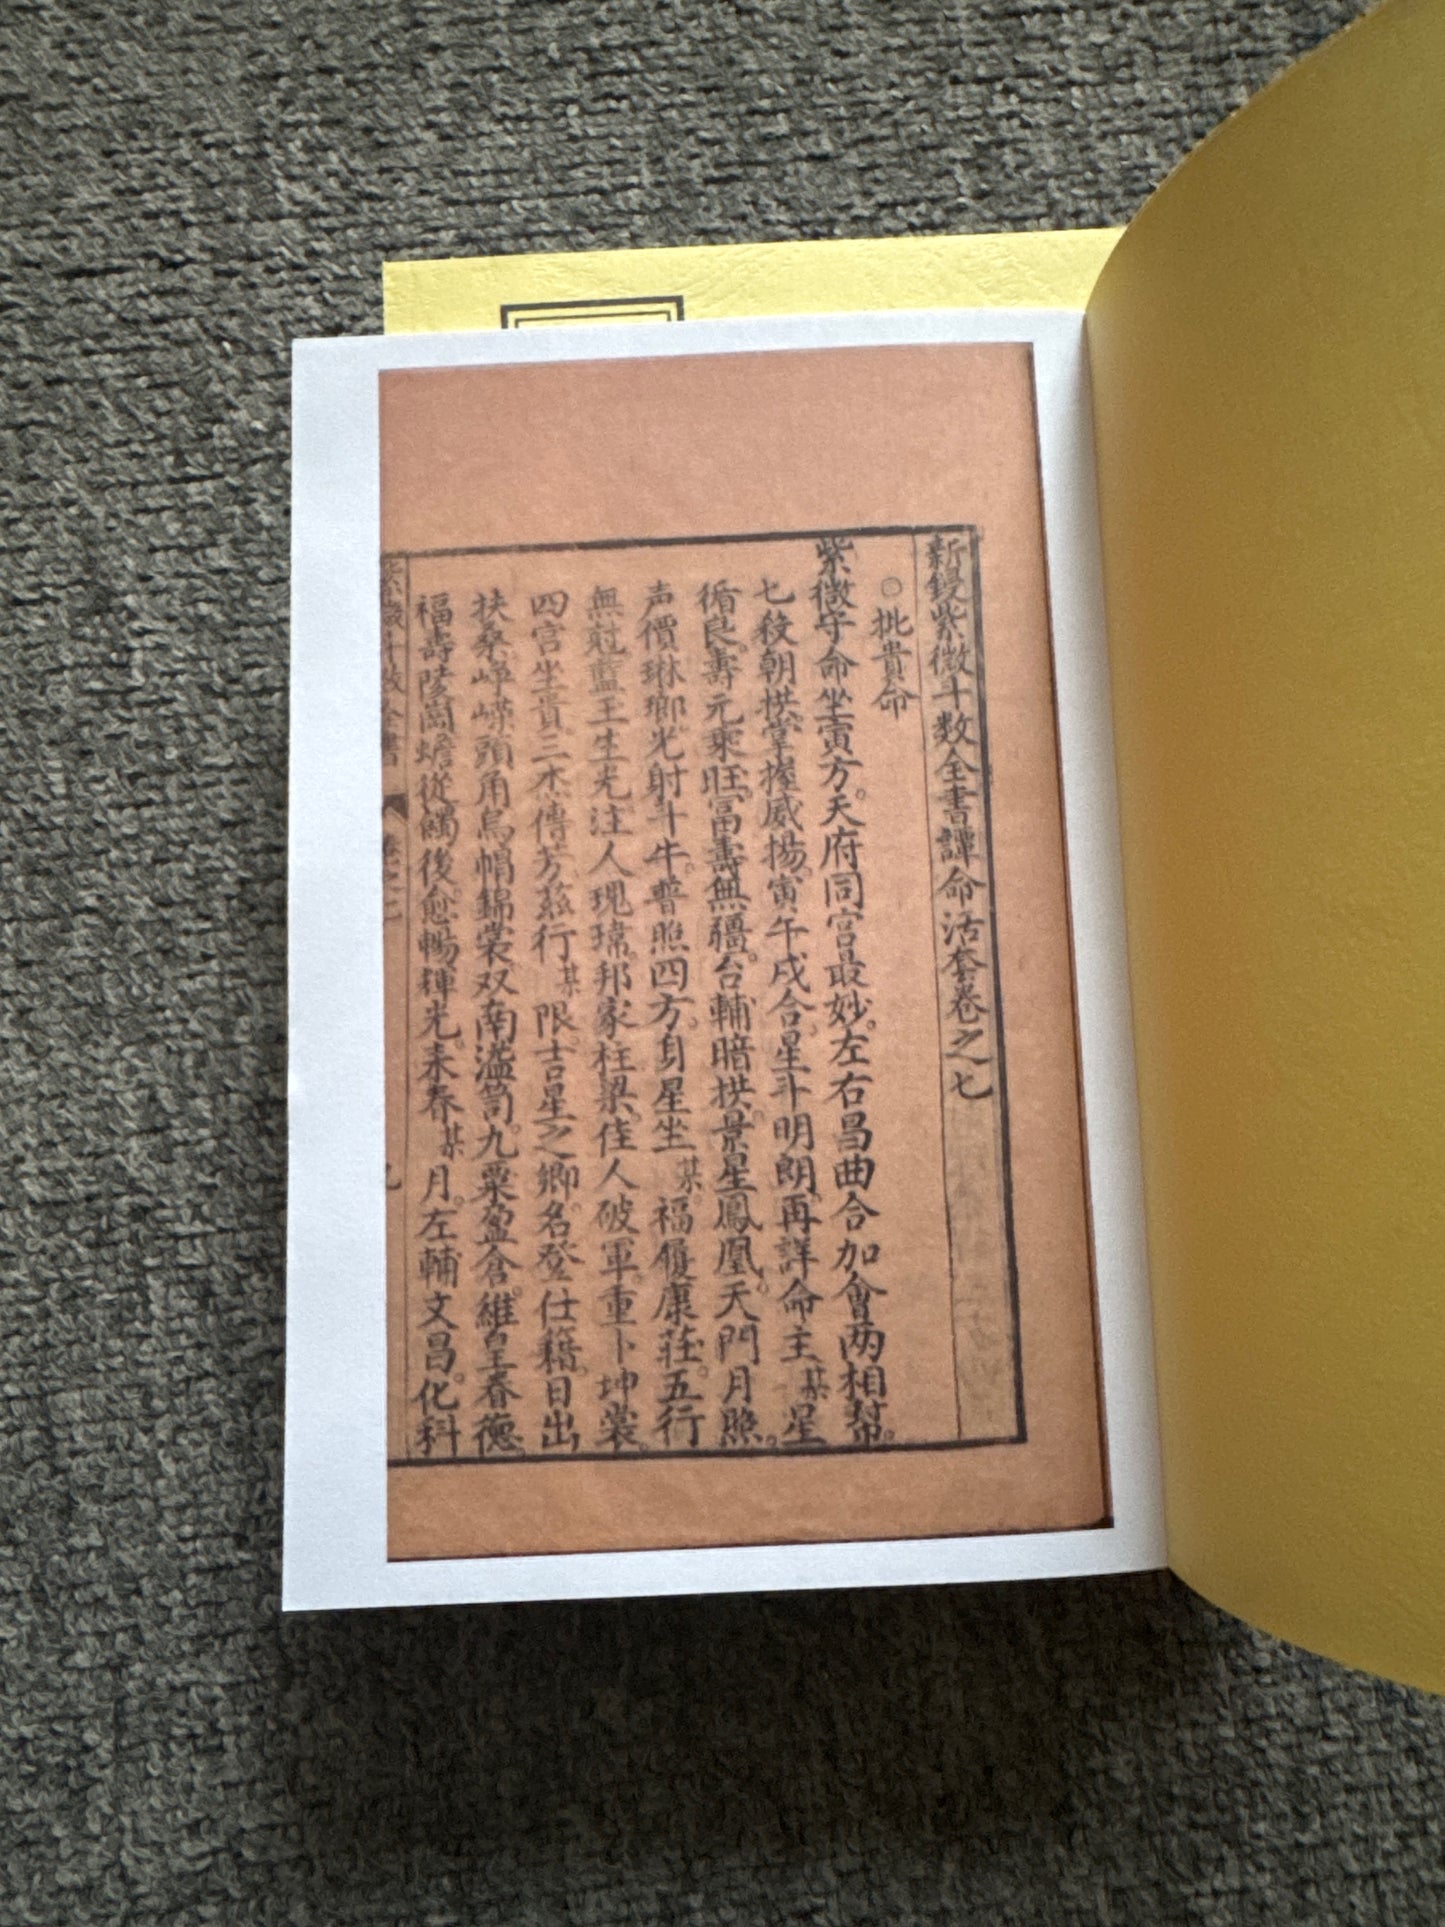 新鋟紫微斗数全書譚命活套卷之七
○批貴命
紫微守命坐寅方。天府同宫最妙。左右昌曲合加會两相幇。
七殺朝拱掌握威揚。寅午戌合。星斗明朗。再詳命主某星
循良。壽元乘旺。富壽無疆。台輔暗拱。景星鳳凰。天門月照。
声價琳瑯。光射斗牛。普照四方。身星坐某。福履康莊。五行
無尅。藍玉生光。注人瑰瑋。邦家柱梁。佳人破軍。重卜坤裳。
四宫坐貴。三杰傳芳。茲行某限。吉星之鄉。名登仕籍。日出
扶桑。崢嶸頭角。烏帽錦裳。双南溢笥。九粟盈倉。維皇春德
福壽陵崗。蟾從 後愈暢輝光。来春某月。左輔文昌。化科